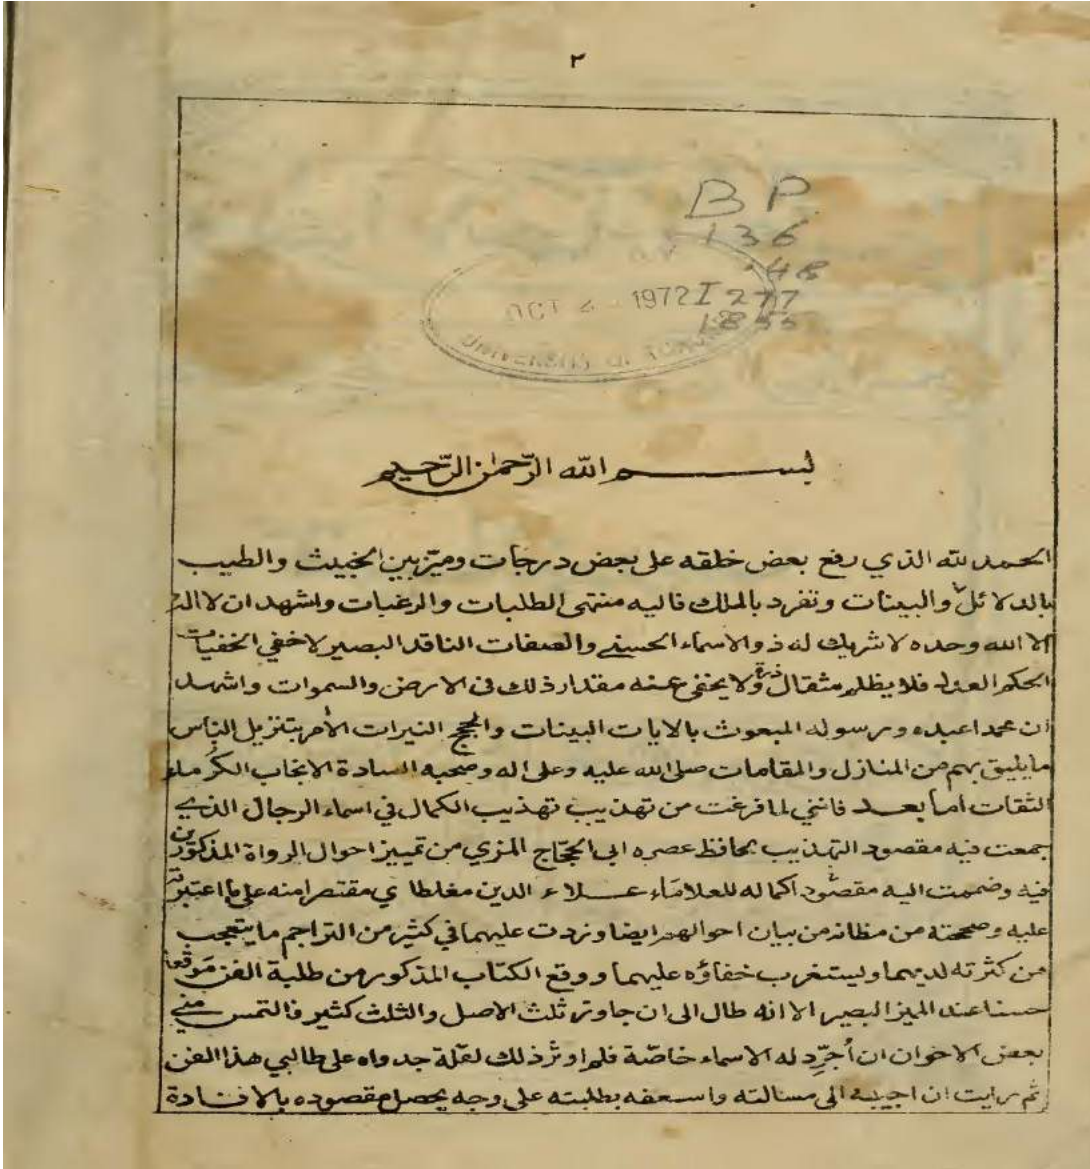 ٢
B P
136
.48
I 277
1855
OCT 1972
UNIVERSITY OF TORONTO
بسم الله الرّحمٰن الرّحيم
الحمد لله الذي رفع بعض خلقه على بعض درجات وميّز بين الخبيث والطيب
بالدلائل والبينات وتفرد بالملك فاليه منتهى الطلبات والرغبات واشهد ان لا اله
الا الله وحده لا شريك له ذو الاسماء الحسنى والصفات الناقد البصير لاخفي الخفيات
الحكم العدل فلا يظلم مثقال ذرة ولا يخفى عنه مقدار ذلك في الارض والسموات واشهد
ان محمدا عبده ورسوله المبعوث بالايات البينات والحجج النيرات الأمر بتنزيل الناس
ما يليق بهم من المنازل والمقامات صلى الله عليه وعلى اله وصحبه السادة الانجاب الكرماء
الثقات أما بعد فانني لما فرغت من تهذيب تهذيب الكمال في اسماء الرجال الذي
جمعت فيه مقصود التهذيب لحافظ عصره ابي الحجّاج المزي من تمييز احوال الرواة المذكورين
فيه وضممت اليه مقصود اكماله للعلامَاء عـلاء الدين مغلطاي مقتصرا منه على ما اعتبرته
عليه وصححته من مظانه من بيان احوالهم ايضا وزدت عليهما في كثير من التراجم ما يتعجب
من كثرته لديهما ويستغرب خفاؤه عليهما ووقع الكتاب المذكور من طلبة الفن مَوقعا
حسنا عند المميز البصير الا انه طال الى ان جاوز ثلث الاصل والثلث كثير فالتمس مني
بعض الاخوان ان أُجرِّد له الاسماء خاصّة فلم اوثر ذلك لقلّة جدواه على طالبي هذا الفن
ثم رايت ان اجيبه الى مسالته واسعفه بطلبته على وجه يحصل مقصوده بالافادة